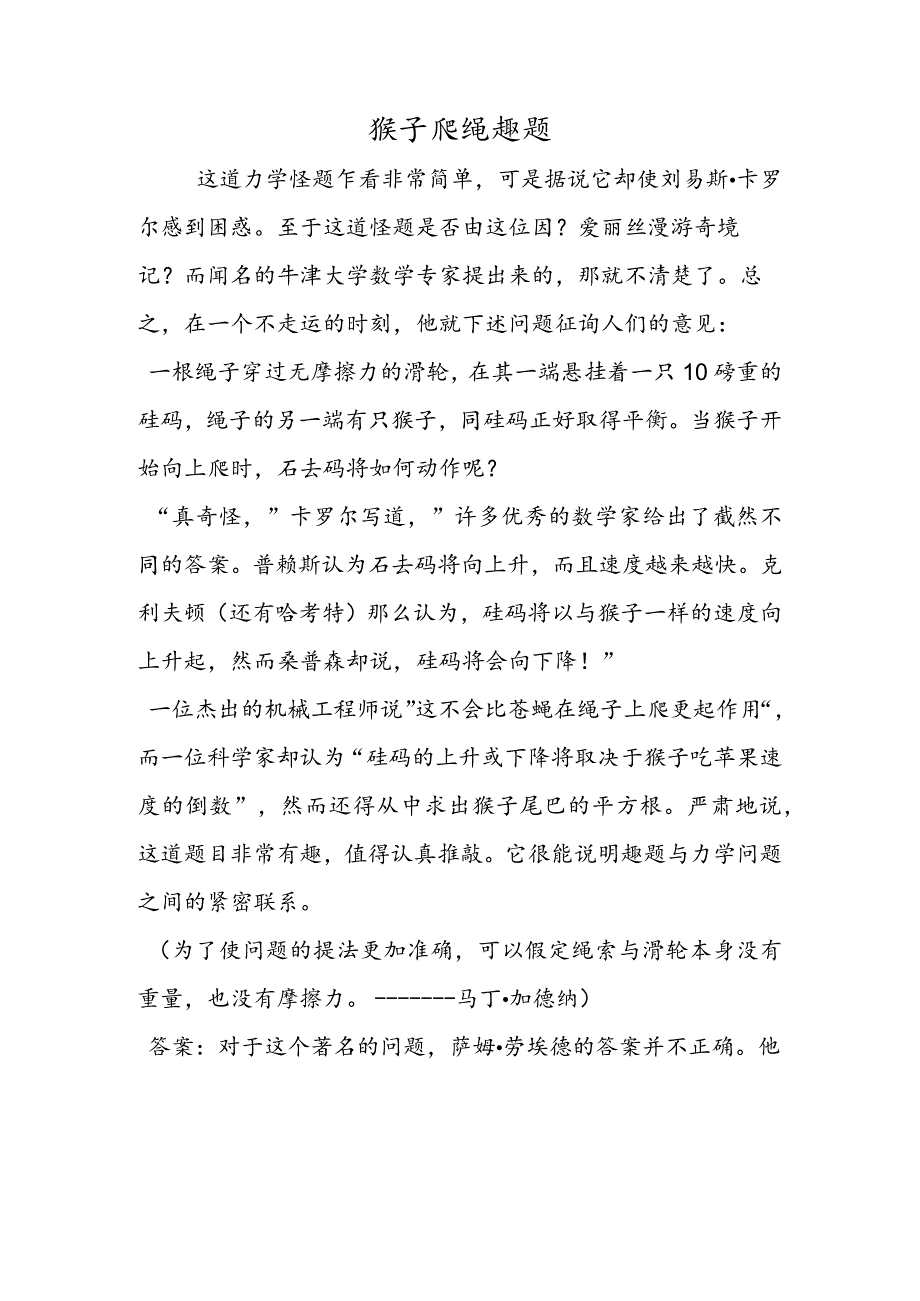 猴子爬绳趣题
这道力学怪题乍看非常简单，可是据说它却使刘易斯•卡罗
尔感到困惑。至于这道怪题是否由这位因？爱丽丝漫游奇境
记？而闻名的牛津大学数学专家提出来的，那就不清楚了。总
之，在一个不走运的时刻，他就下述问题征询人们的意见：
一根绳子穿过无摩擦力的滑轮，在其一端悬挂着一只10磅重的
硅码，绳子的另一端有只猴子，同硅码正好取得平衡。当猴子开
始向上爬时，石去码将如何动作呢？
“真奇怪，”卡罗尔写道，”许多优秀的数学家给出了截然不
同的答案。普赖斯认为石去码将向上升，而且速度越来越快。克
利夫顿（还有哈考特）那么认为，硅码将以与猴子一样的速度向
上升起，然而桑普森却说，硅码将会向下降！”
一位杰出的机械工程师说”这不会比苍蝇在绳子上爬更起作用“，
而一位科学家却认为“硅码的上升或下降将取决于猴子吃苹果速
度的倒数”，然而还得从中求出猴子尾巴的平方根。严肃地说，
这道题目非常有趣，值得认真推敲。它很能说明趣题与力学问题
之间的紧密联系。
（为了使问题的提法更加准确，可以假定绳索与滑轮本身没有
重量，也没有摩擦力。-------马丁•加德纳）
答案：对于这个著名的问题，萨姆•劳埃德的答案并不正确。他